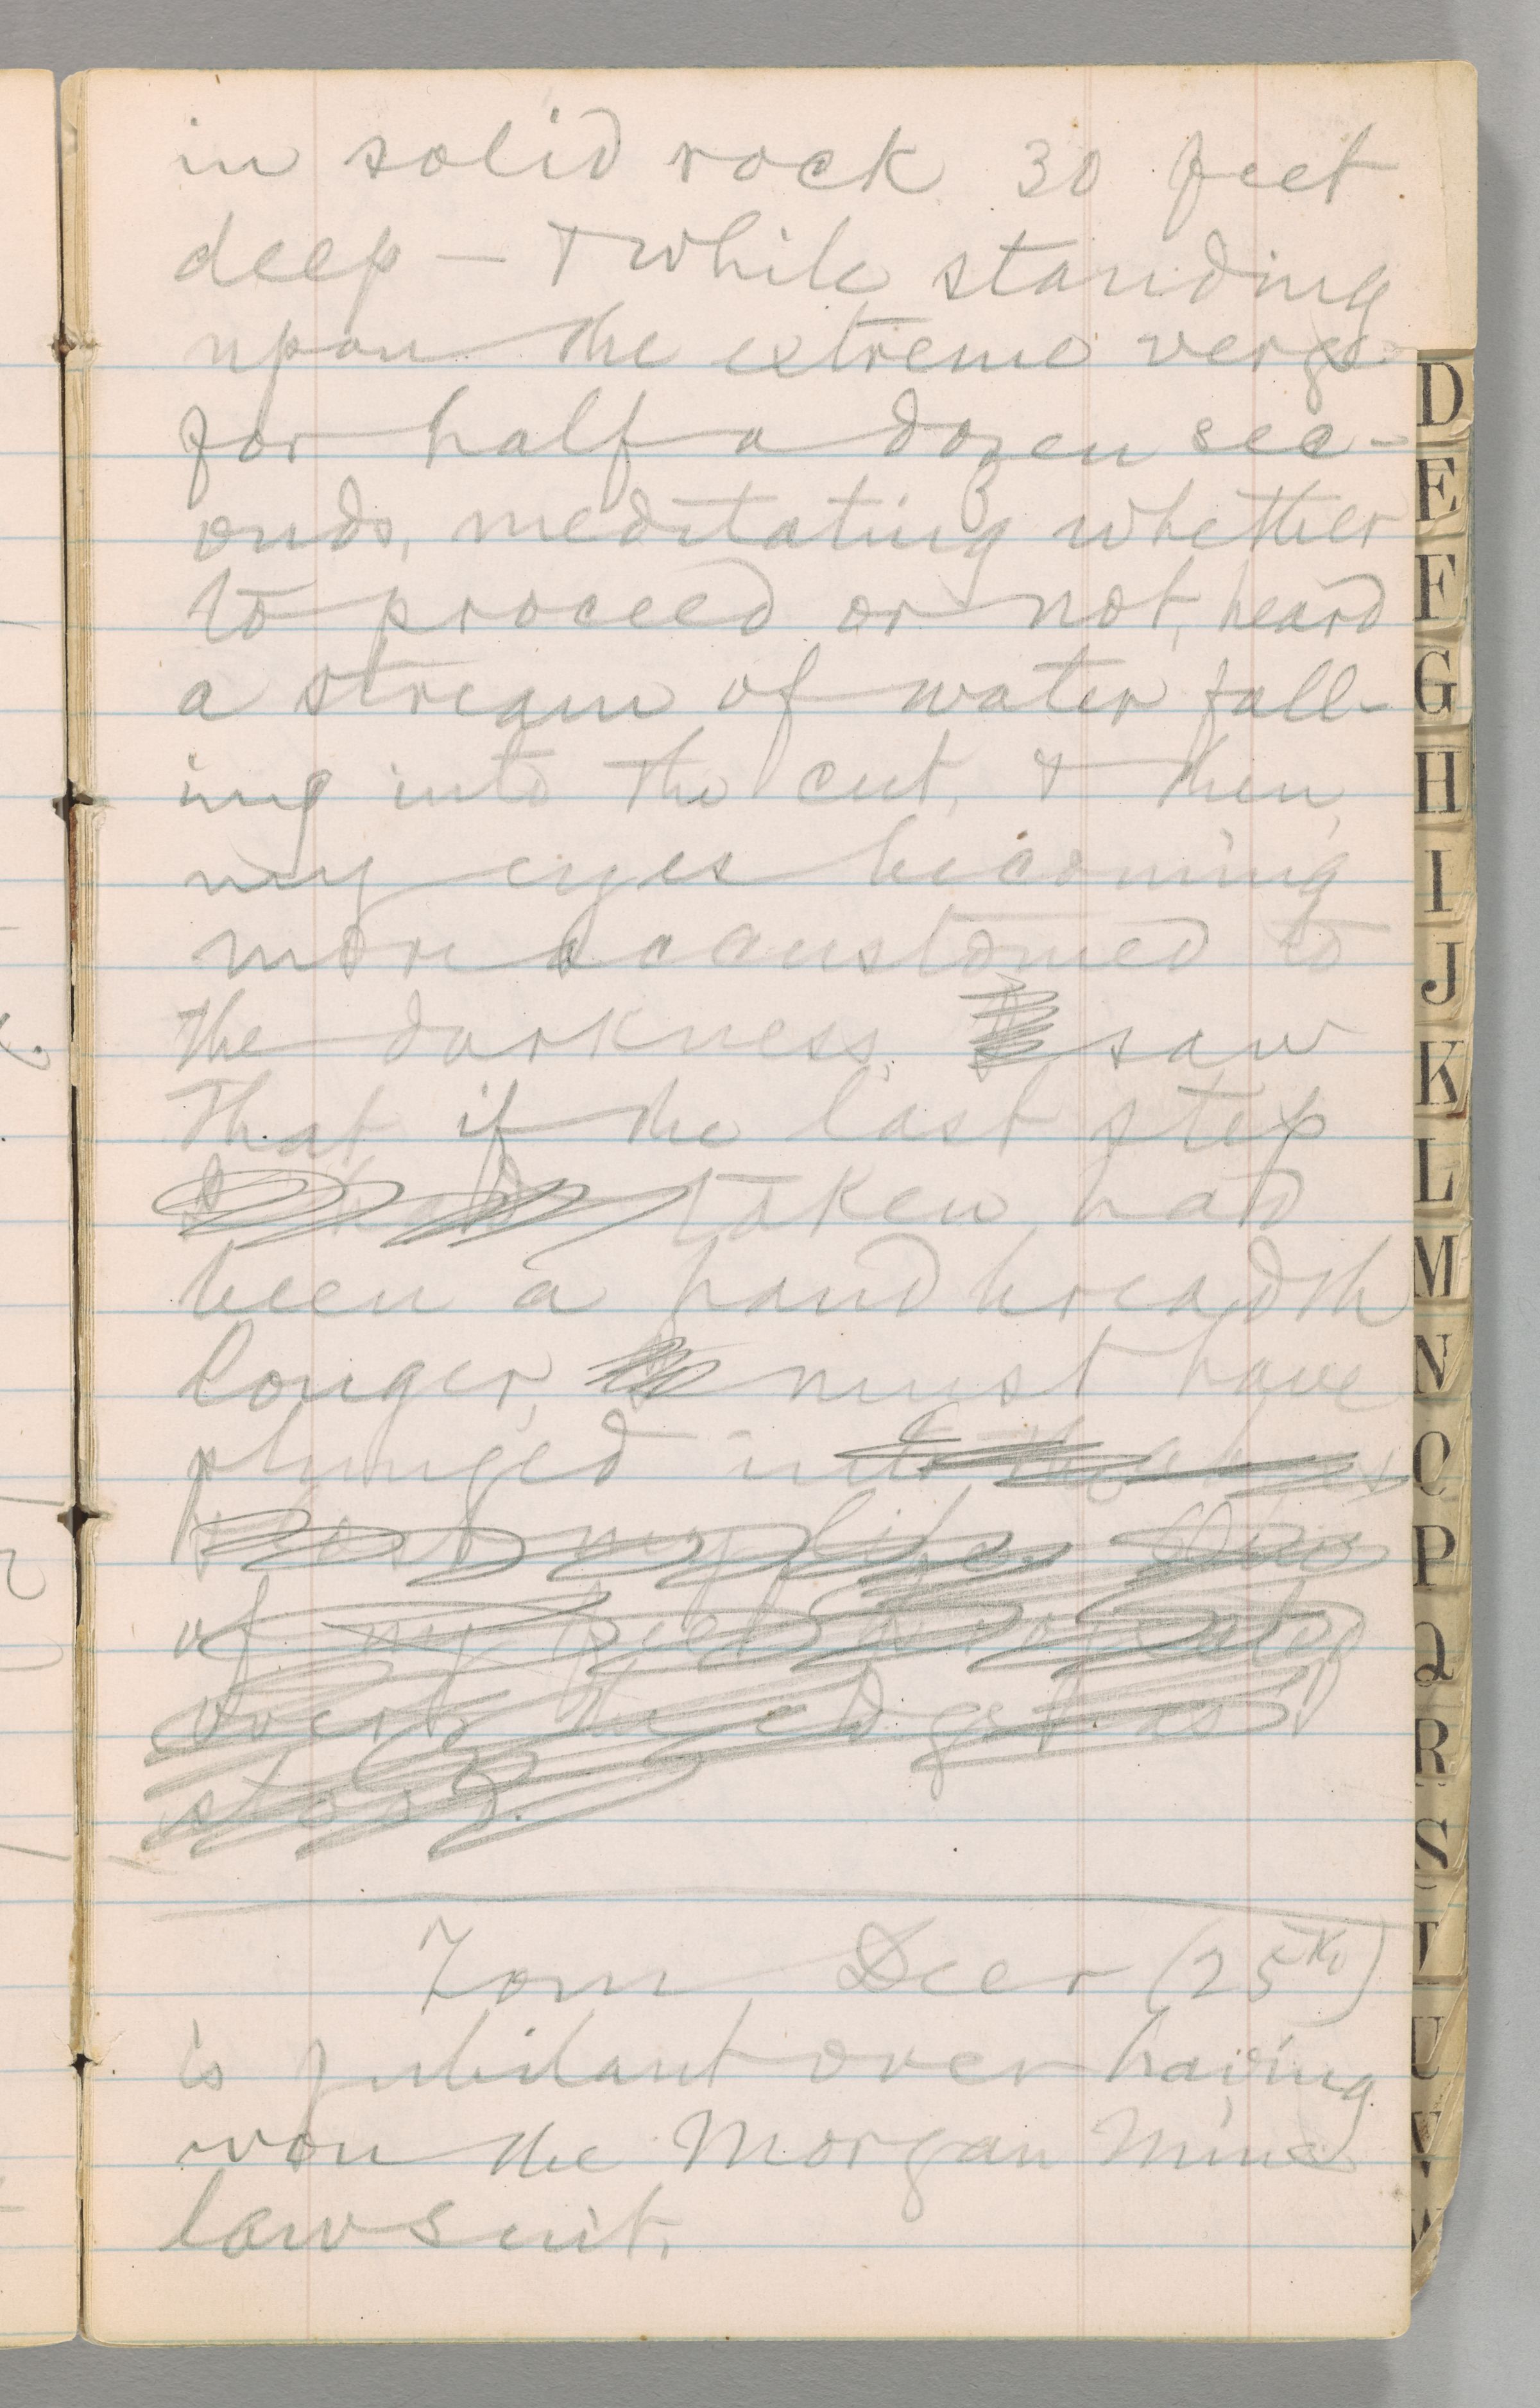 in solid rock 30 feet
deep — & while standing
upon the extreme verge
for half a dozen sec-
onds, meditating whether
to proceed or not, heard
a stream of water fall-
ing into the cut, & then,
my eyes becoming
more accustomed to
the darkness, saw
that if the last step
I had taken had
been a hand breadth
longer, must have
plunged into the abyss
& lost my life. One
of my feet projected
over the edge as I
stood.
Tom Deer (25th)
is jubilant over having
won the Morgan Mine
lawsuit.
D
E
F
G
H
I
J
K
L
M
N
O
P
Q
R
S
T
U
V
W